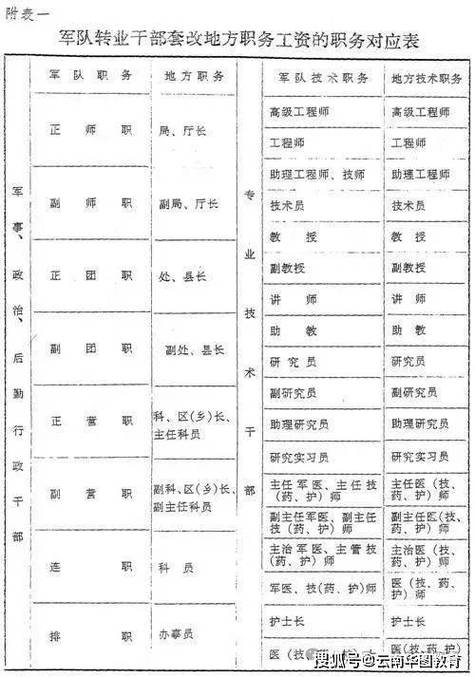 附表一
军队转业干部套改地方职务工资的职务对应表
军事、政治、后勤行政干部
军队职务 地方职务
正师职 局、厅长
副师职 副局、厅长
正团职 处、县长
副团职 副处、县长
正营职 科、区(乡)长、
主任科员
副营职 副科、区(乡)长、
副主任科员
连职 科员
排职 办事员
专业技术干部
军队技术职务 地方技术职务
高级工程师 高级工程师
工程师 工程师
助理工程师、技师 助理工程师
技术员 技术员
教授 教授
副教授 副教授
讲师 讲师
助教 助教
研究员 研究员
副研究员 副研究员
助理研究员 助理研究员
研究实习员 研究实习员
主任军医、主任技 主任医(技、
(药、护)师 药、护)师
副主任军医、副主任 副主任医(技、
技(药、护)师 药、护)师
主治军医、主管技 主治医(技、
(药、护)师 药、护)师
军医、技(药、护)师 医(技、药、
护)师
护士长 护士长
医(技 医(技、药、护)
搜狐号@云南华图教育